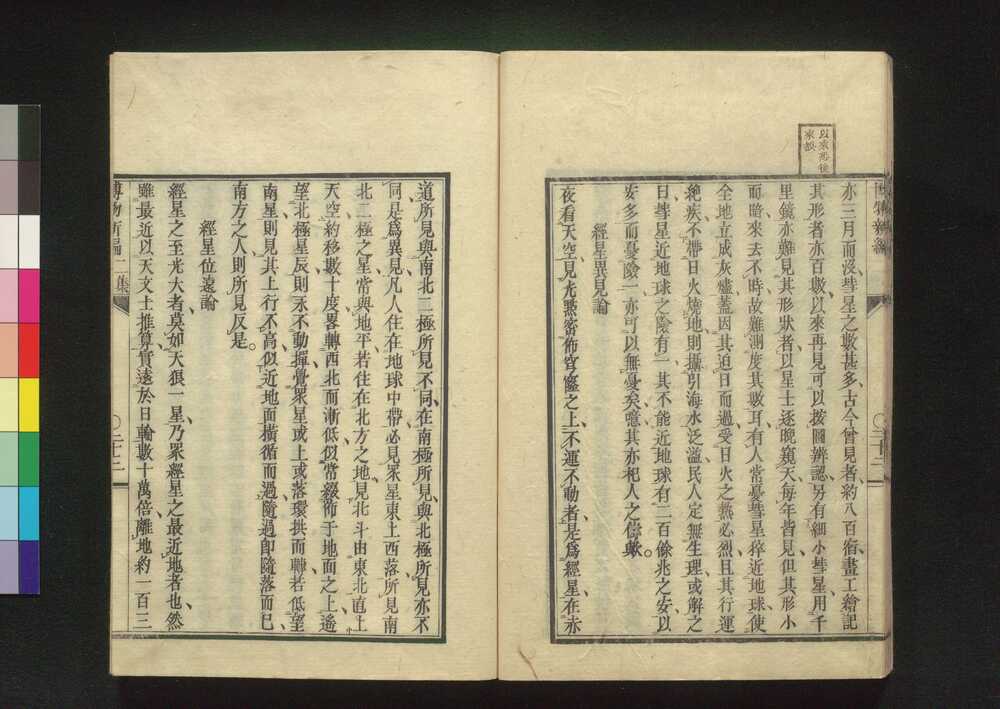 以来恐後
來誤
亦三月而沒彗星之數甚多古今曾見者約八百衛畫工繪記
其形者亦百數以來再見可以按圖辨認另有細小彗星用千
里鏡亦難見其形狀者以星士逐晚窺天每年皆見但其形小
而暗來去不時故難測度其數耳有人常憂彗星猝近地球使
全地立成灰燼蓋因其迫日而過受日火之熱必烈且其行運
絶疾不帶日火燒地則攝引海水泛溢民人定無生理或解之
曰彗星近地球之險有一其不能近地球有二百餘兆之安以
安多而憂險一亦可以無憂矣噫其亦杞人之儔歟
經星異見論
夜看天空見光點密佈穹窿之上不運不動者是爲經星在赤
道所見與南北二極所見不同在南極所見與北極所見亦不
同是爲異見凡人住在地球中帶必見眾星東上西落所見南
北二極之星當與地平若住在北方之地見北斗由東北直上
天空約移數十度畧轉西北而漸低似常綴佈于地面之上遙
望北極星辰則永不動搖覺眾星或上或落環拱而聯若低望
南星則見其上行不高似近地面橫循而過隨過卽隨落而已
南方之人則所見反是
經星位遠論
經星之至光大者莫如天狼一星乃眾經星之最近地者也然
雖最近以天文士推算實遠於日輪數十萬倍離地約一百三
博物新編二集
二十二